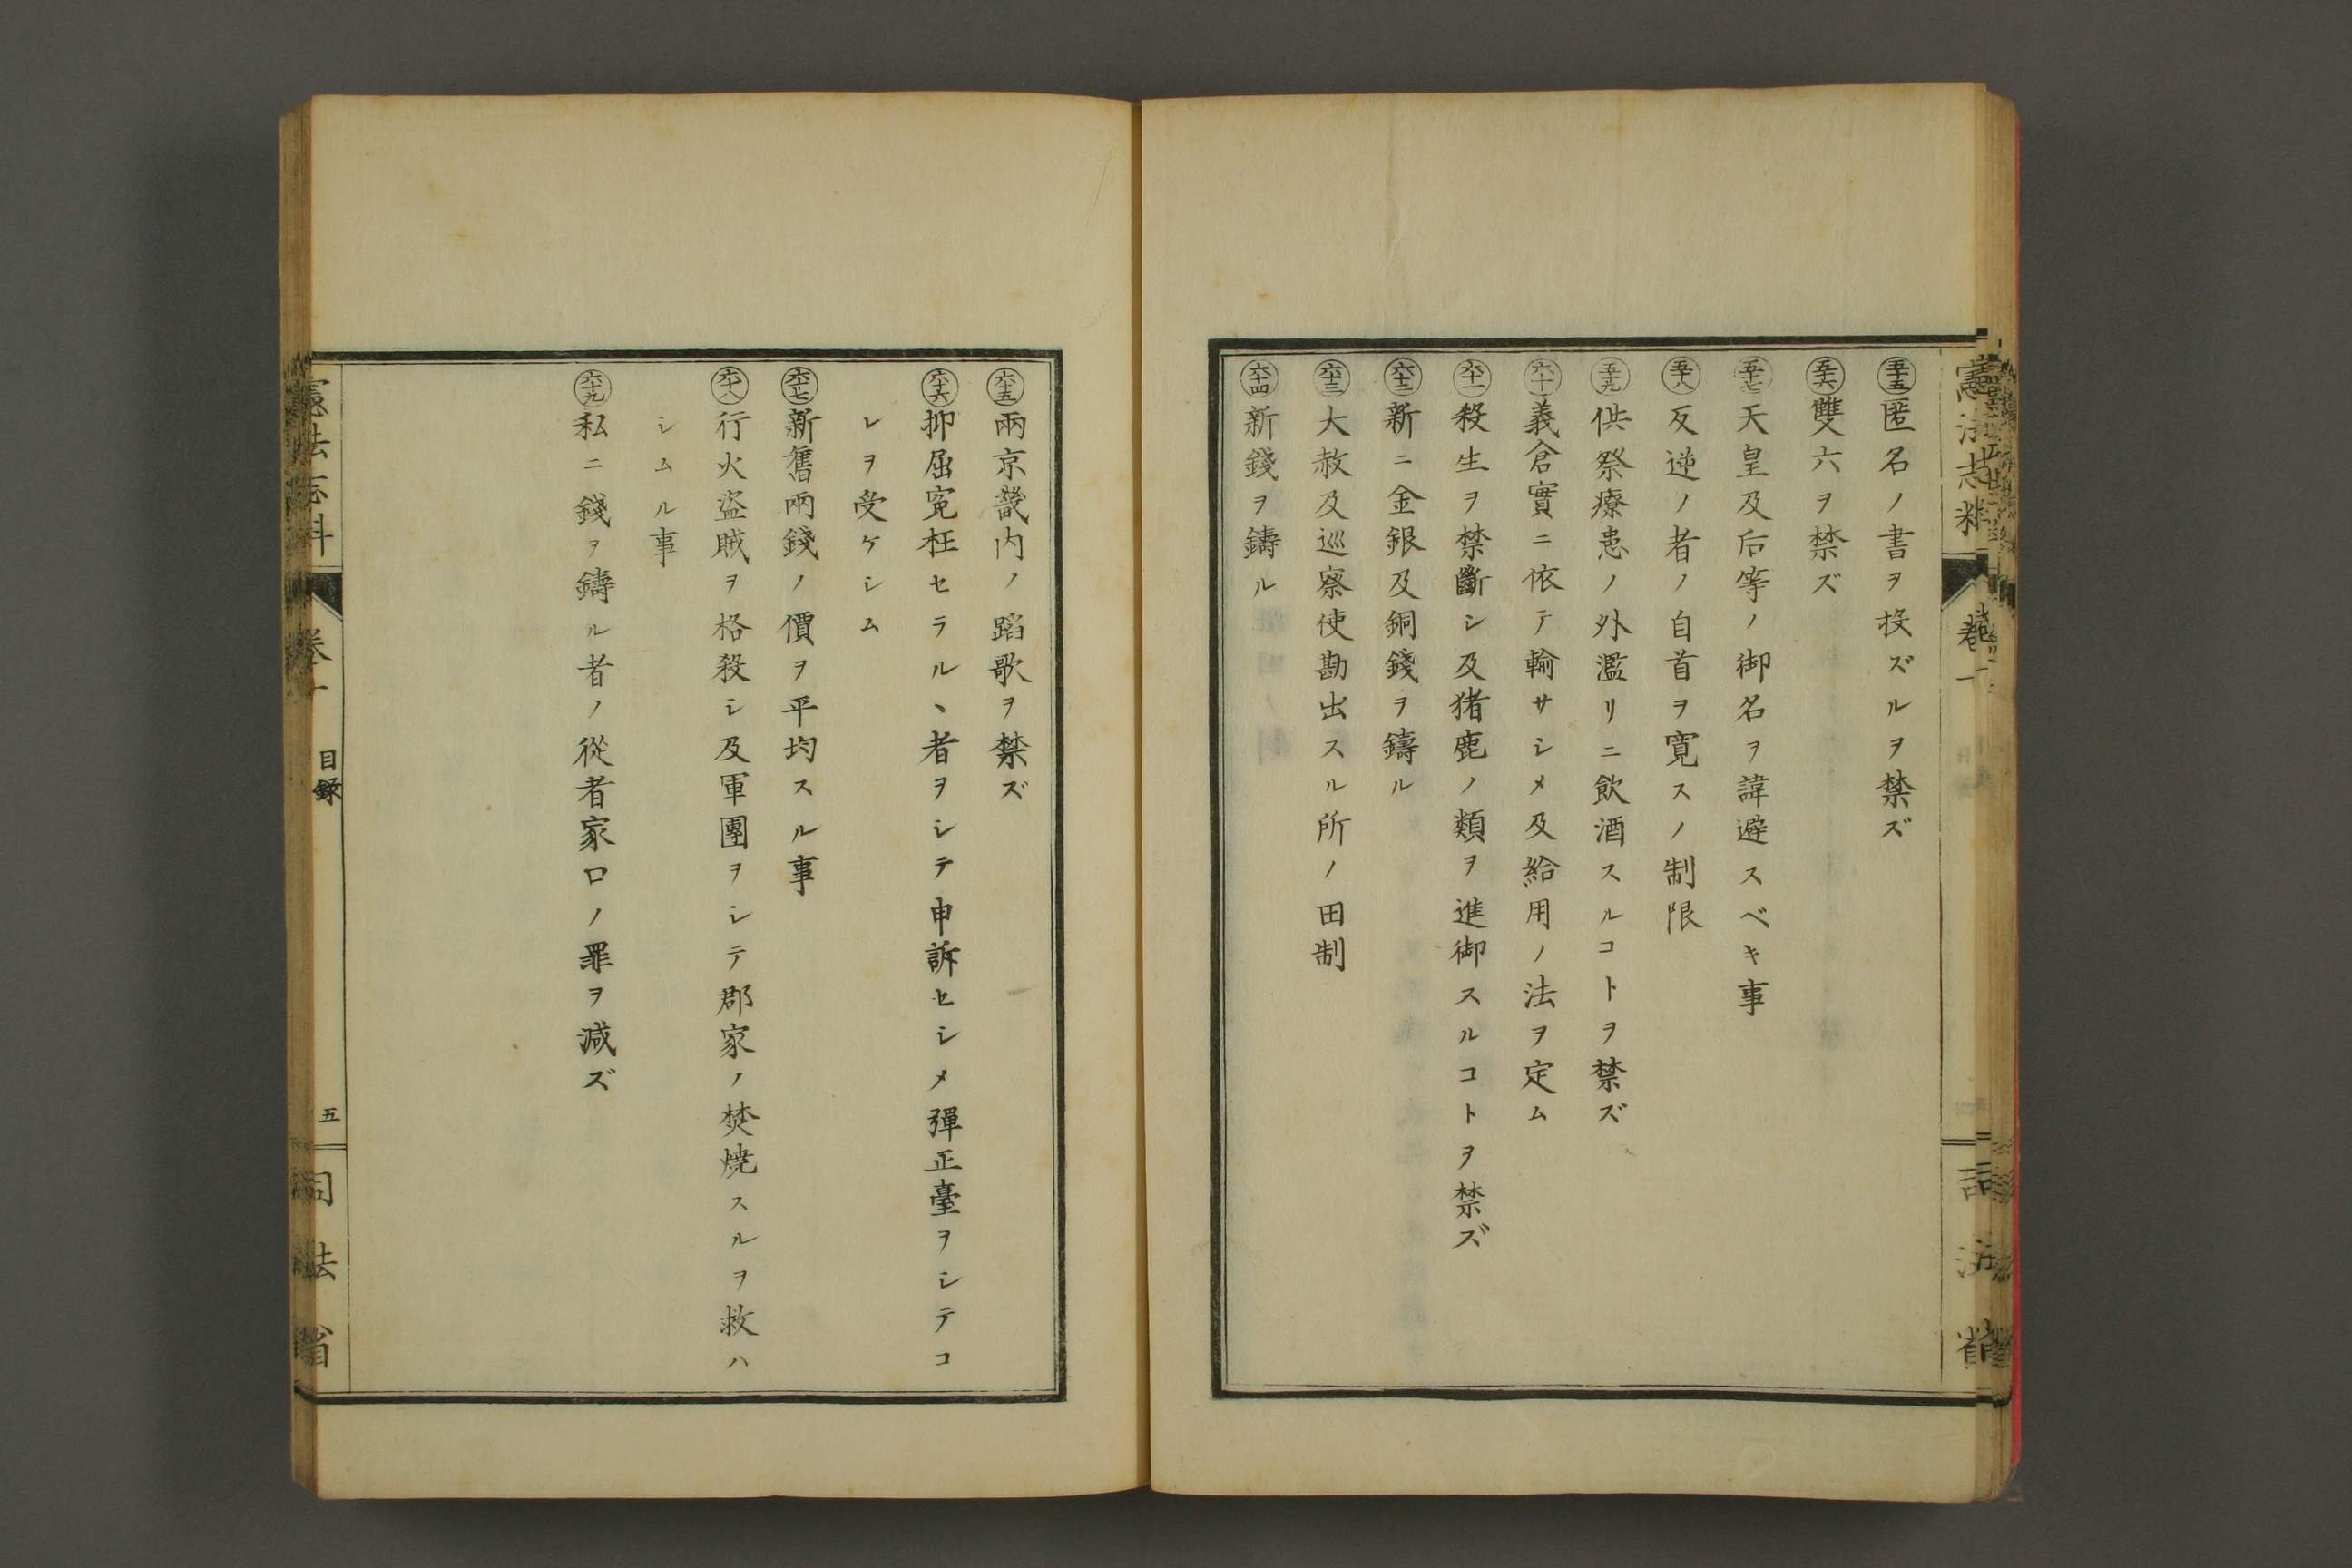 憲法志料
卷一
司法省
五十五 匿名ノ書ヲ投ズルヲ禁ズ
五十六 雙六ヲ禁ズ
五十七 天皇及后等ノ御名ヲ諱避スベキ事
五十八 反逆ノ者ノ自首ヲ寛スノ制限
五十九 供祭療患ノ外濫リニ飮酒スルコトヲ禁ズ
六十 義倉實ニ依テ輸サシメ及給用ノ法ヲ定ム
六十一 殺生ヲ禁斷シ及猪鹿ノ類ヲ進御スルコトヲ禁ズ
六十二 新ニ金銀及銅錢ヲ鑄ル
六十三 大赦及巡察使勘出スル所ノ田制
六十四 新錢ヲ鑄ル
六十五 兩京畿内ノ蹈歌ヲ禁ズ
六十六 抑屈寃枉セラルヽ者ヲシテ申訴セシメ彈正臺ヲシテコ
レヲ受ケシム
六十七 新舊兩錢ノ價ヲ平均スル事
六十八 行火盜賊ヲ格殺シ及軍團ヲシテ郡家ノ焚燒スルヲ救ハ
シムル事
六十九 私ニ錢ヲ鑄ル者ノ從者家口ノ罪ヲ減ズ
憲法志料
卷一
目錄
五
司法省